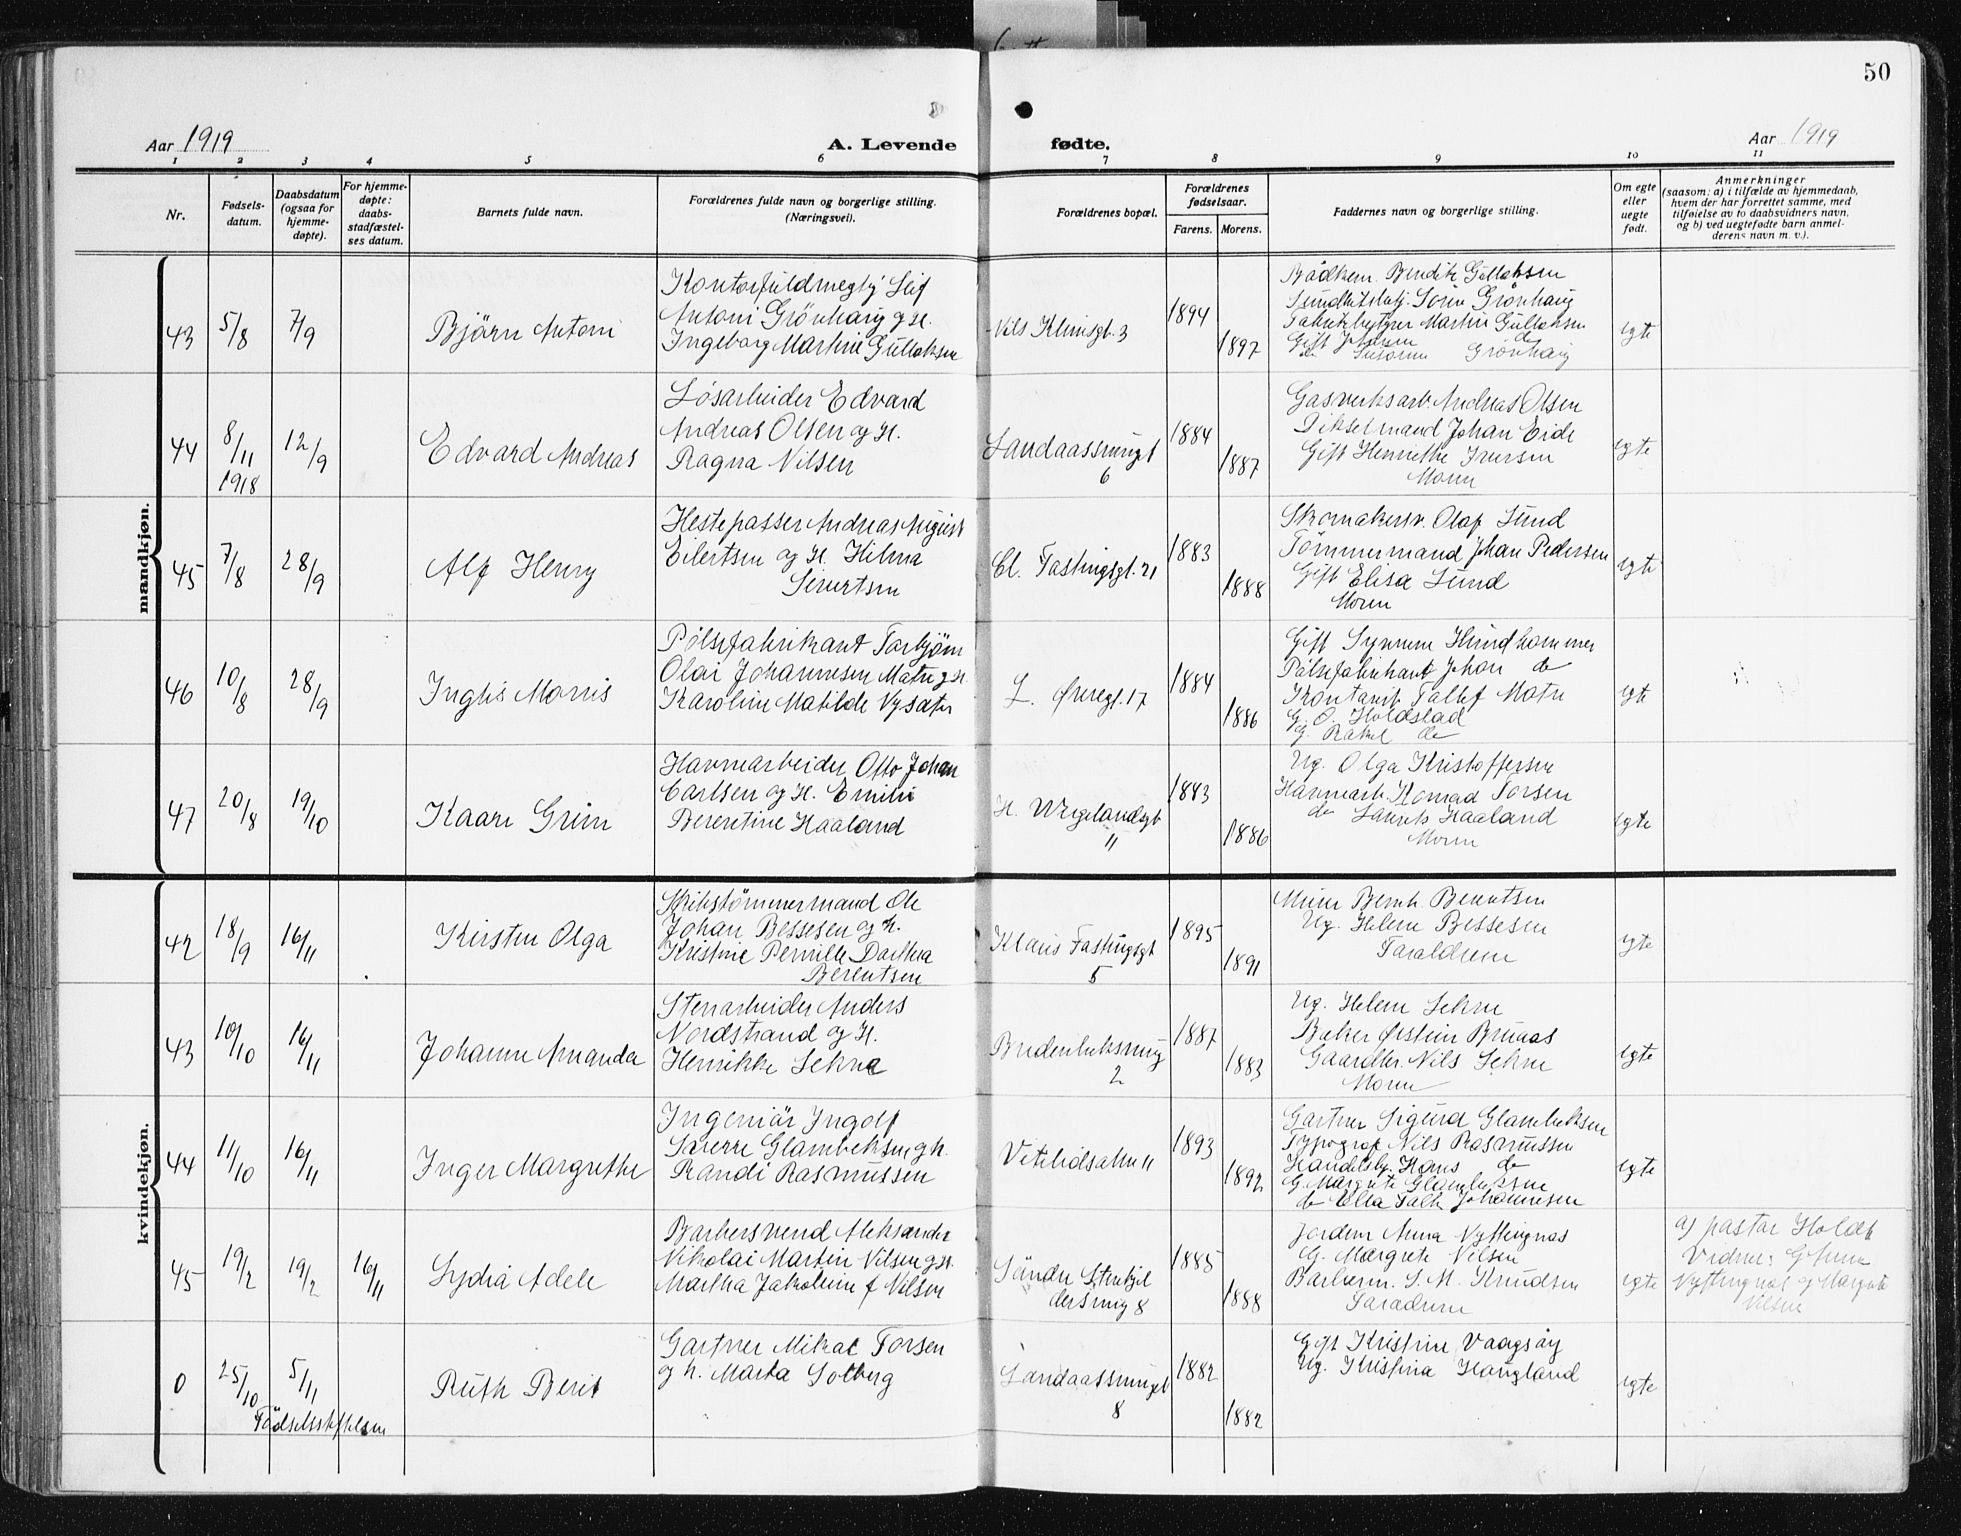 50
Aar 1919
A. Levende
fødte.
Aar 1919
1 2 3 4 5 6 7 8 9 10 11
Nr.
Fødsels-
datum.
Daabsdatum
(ogsaa for
hjemme-
døpte).
For hjemme-
døpte:
daabs-
stadfæstel-
ses datum.
Barnets fulde navn.
Forældrenes fulde navn og borgerlige stilling.
(Næringsvei).
Forældrenes bopæl.
Forældrenes
fødselsaar.
Farens. Morens.
Faddernes navn og borgerlige stilling.
Om egte
eller
uegte
født.
Anmerkninger
(saasom: a) i tilfælde av hjemmedaab,
hvem der har forrettet samme, med
tilføielse av to daabsvidners navn,
og b) ved uegtefødte barn anmel-
derens navn m. v.).
mandkjøn.
43
5/8
7/9
Bjørn Antoni
Antoni Grönhaug og H.
Ingeborg Martine Gullaksen
Nils Klimsgt. 3
1894
1897
Bendik Gullaksen
Grönhaug
Martin Gullaksen
Gift
do Grönhaug
egte
44
8/11
1918
12/9
Edvard Andreas
Løsarbeider Edvard
Andreas Olsen og H.
Ragna Nilsen
6
1884
1887
Gasverksarb. Andreas Olsen
Johan Eide
Gift Henriette Iversen
Moren
egte
45
7/8
28/9
Alf Henry
Hestepasser Andreas August
Eilertsen og H. Hilma
Sivertsen
Cl. Fastingsgt. 21
1883
1888
Skomakersv. Olaf Lund
Tømmermand Johan Pedersen
Gift Elisa Lund
Moren
egte
46
10/8
28/9
Morris
Pølsefabrikant Torbjørn
Olai Johannesen Matre og H.
Karoline Matilde
L. Øvregt. 17
1884
1886
Gift
Pølsefabrikant Johan do
Matre
G. O. Holdstad
G. Rakel do
egte
47
20/8
19/10
Kaare Grim
Havnearbeider Otto Johan
Carlsen og H. Emilie
Berentine Haaland
H. Wergelandsgt
11
1883
1886
Ug. Olga Kristoffersen
Havnearb. Konrad Torsen
do Haaland
Moren
egte
kvindekjøn.
42
18/9
16/11
Kirsten Olga
Skibstömmermand Ole
Johan Bessesen og H.
Kristine Pernille Dorthea
Berentsen
Klaus Fastingsgt
5
1895
1891
Murer Bernh. Berentsen
Ug. Helene Bessesen
Foreldrene
egte
43
10/10
16/11
Johanne Amanda
Stenarbeider Anders
Nordstrand og H.
Henrikke Sekne
Bredenbeksmug
2
1887
1883
Ug. Helene Sekne
Baker Øistein
Nils Sekne
Moren
egte
44
11/10
16/11
Inger Margrethe
Ingeniör Ingolf
Sverre Glambeksen og H.
Randi Rasmussen
11
1893
1892
Gartner Sigurd Glambeksen
Typograf Nils Rasmussen
Hans do
G. Margrete Glambeksen
do Johannesen
egte
45
19/2
19/2
16/11
Lydia Adele
Barbersvend Aleksander
Nikolai Martin Nilsen og H.
Martha Jakobine f. Nilsen
Söndre Stenkjel
dersmug 8
1885
1888
Jordem. Anna Nyttingnæs
G. Margrete Nilsen
Barberm. S. M. Knudsen
Foreldrene
egte
a) pastor Holdt
Vidner: G. Anna
Nyttingnæs og Margrete
Nilsen
0
25/10
5/11
Fødselsskjelsen
Ruth Berit
Gartner Mikal Torsen
og H. Marta Solberg
8
1882
1882
Gift Kristine Vaagsøy
Ug. Kristina Haugland
egte